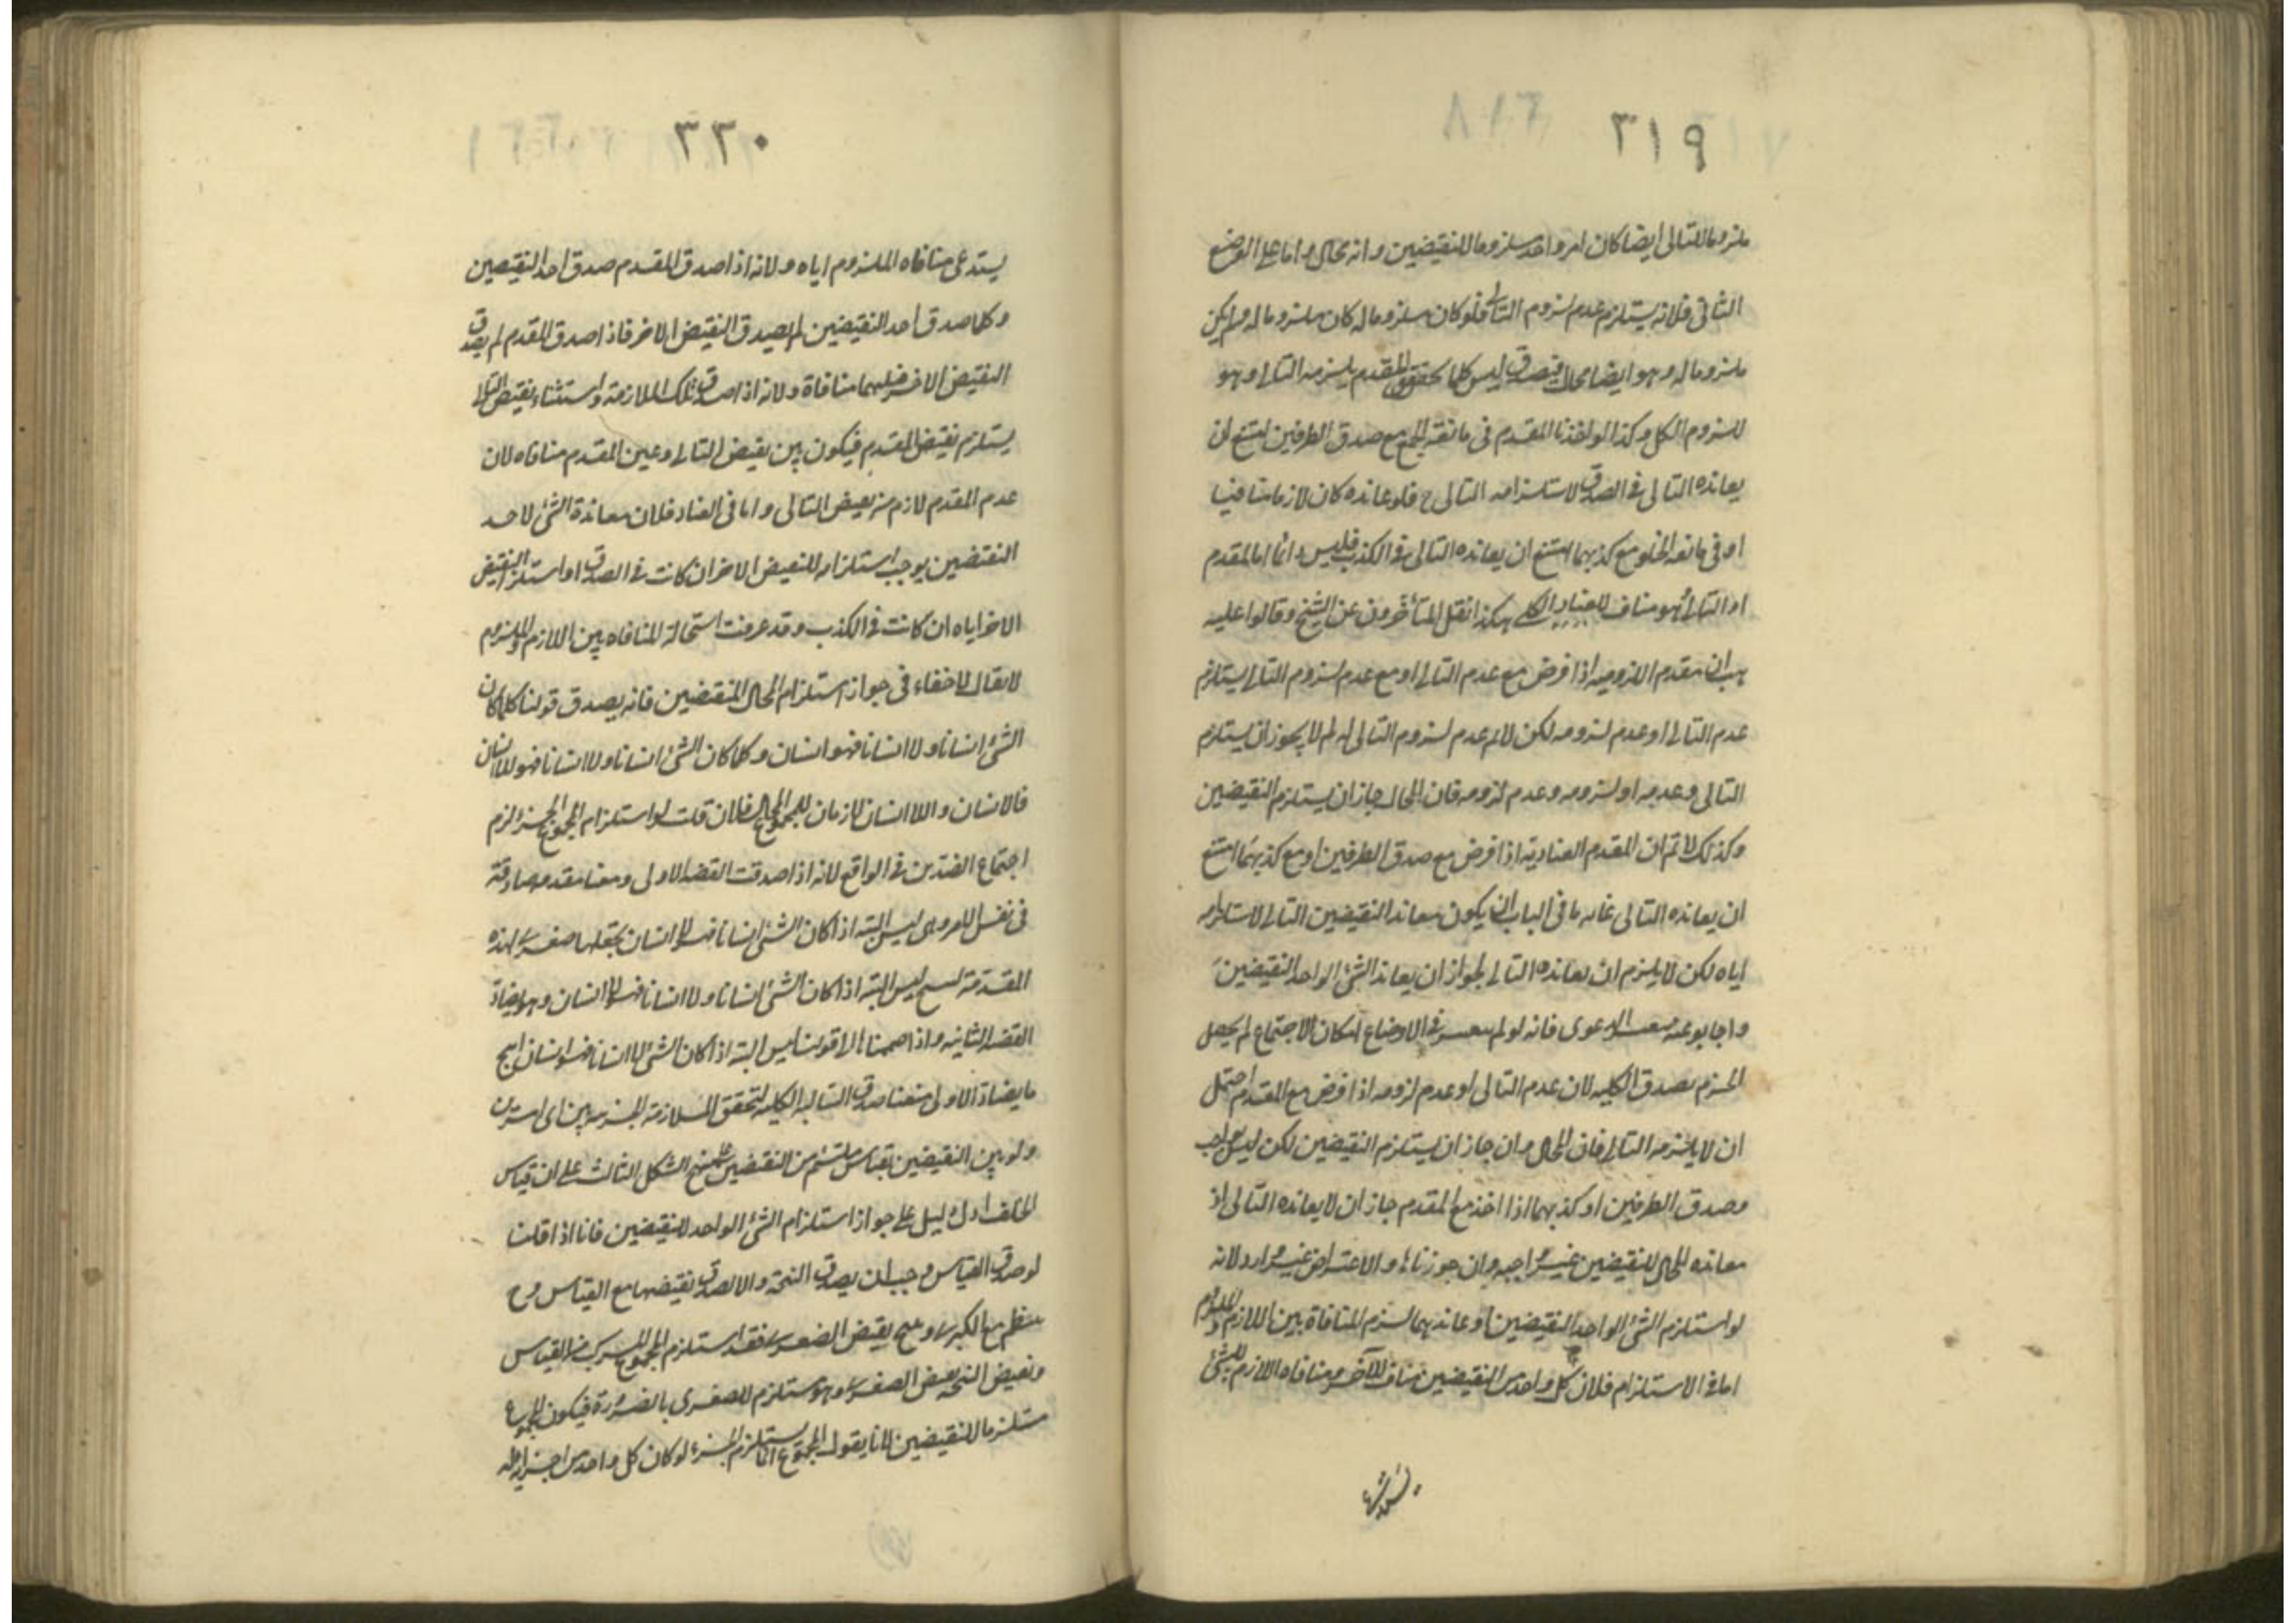 ٣١٩
ملزوما للتالى ايضا كان امر واحد ملزوما للنقيضين وانه محال واما على الوضع
الثانى فلانه يستلزم عدم لزوم التالى فلو كان ملزوما له كان ملزوما له ولم يكن
ملزوما له وهو ايضا محال فيصدق ليس كلما تحقق المقدم يلزمه التالى وهو
للزوم الكلى وكذا لو اخذنا المقدم فى مانعة الجمع مع صدق الطرفين امتنع ان
يعانده التالى فى الصدق لاستلزامه التالى ح فلو عانده كان لازما منافيا
او فى مانعه الخلو مع كذبهما امتنع ان يعانده التالى فى الكذب فليس دائما اما المقدم
او التالى وهو مناف للعناد الكلى هكذا نقل المتأخرون عن الشيخ وقالوا عليه
هب ان مقدم اللزوميه اذا فرض مع عدم التالى او مع عدم لزوم التالى يستلزم
عدم التالى او عدم لزومه لكن لانم عدم لزوم التالى له لم لا يجوز ان يستلزم
التالى وعدمه او لزومه وعدم لزومه فان المحال جاز ان يستلزم النقيضين
وكذلك لانم ان المقدم العناديه اذا فرض مع صدق الطرفين او مع كذبهما امتنع
ان يعانده التالى غايه ما فى الباب ان يكون معاندا لنقيضين التالى لاستلزامه
اياه لكن لا يلزم ان يعانده التالى لجواز ان يعاند الشئ الواحد النقيضين
واجابوا عنه الدعوى فانه لو لم فى الاوضاع امكان الاجتماع لم يحصل
الجزم بصدق الكليه لان عدم التالى او عدم لزومه اذا فرض مع المقدم احتمل
ان لا يلزمه التالى فان المحال وان جاز ان يستلزم النقيضين لكن ليس بواجب
وصدق الطرفين او كذبهما اذا اخذ مع المقدم جاز ان لا يعانده التالى اذ
معانده المحال للنقيضين غير واجبه وان جوزناها والاعتراض غير وارد لانه
لو استلزم الشئ الواحد النقيضين او عاندهما لزم المنافاة بين اللازم والملزوم
اما فى الاستلزام فلان كل واحد من النقيضين مناف للآخر ومنافاه اللازم للشئ
٣٢٠
يستدعى منافاه الملزوم اياه ولانه اذا صدق المقدم صدق احد النقيضين
وكلما صدق احد النقيضين لم يصدق النقيض الاخر فاذا صدق المقدم لم يصدق
النقيض الاخر فبينهما منافاة ولانه اذا صدق تلك الملازمة واستثناء نقيض التالى
يستلزم نقيض المقدم فيكون بين نقيض التالى وعين المقدم منافاه لان
عدم المقدم لازم من نقيض التالى واما فى العناد فلان معاندة الشئ لاحد
النقيضين يوجب استلزامه للنقيض الاخر ان كانت فى الصدق او استلزام النقيض
الاخر اياه ان كانت فى الكذب وقد عرفت استحالة المنافاه بين اللازم والملزوم
لا يقال لاخفاء فى جواز استلزام المحال النقيضين فانه يصدق قولنا كلما كان
الشئ انسانا ولا انسانا فهو انسان وكلما كان الشئ انسانا ولا انسانا فهو لا انسان
فالانسان واللا انسان لازمان للمجموع المحال فان قلت لو استلزام المجموع الجزء لزم
اجتماع الضدين فى الواقع لانه اذا صدقت القضيه الاولى ومعنا مقدمه صادقة
فى نفس الامر وهى ليس البته اذا كان الشئ انسانا فهو لا انسان نجعلها صغرى لهذه
المقدمة ليس البته اذا كان الشئ انسانا ولا انسانا فهو لا انسان وهو يضاد
القضيه الثانيه واذا ضممنا الى قولنا ليس البته اذا كان الشئ لا انسانا فهو انسان انتج
ما يضاد الاولى منعنا صدق السالبه الكليه لتحقق الملازمة الجزئيه بين اى امرين
ولو بين النقيضين بقياس ملتئم من النقيضين ينتج الشكل الثالث على ان قياس
الخلف ادل دليل على جواز استلزام الشئ الواحد للنقيضين فانا اذا قلنا
لو صدق القياس وجب ان يصدق النتيجه والا لصدق نقيضها مع القياس وح
ينتظم مع الكبرى وينتج نقيض الصغرى فقد استلزم المجموع المركب من القياس
ونقيض النتيجه نقيض الصغرى وهو مستلزم للصغرى بالضرورة فيكون المجموع
مستلزما للنقيضين لانا نقول المجموع انما يستلزم الجزء لو كان كل واحد من اجزائه